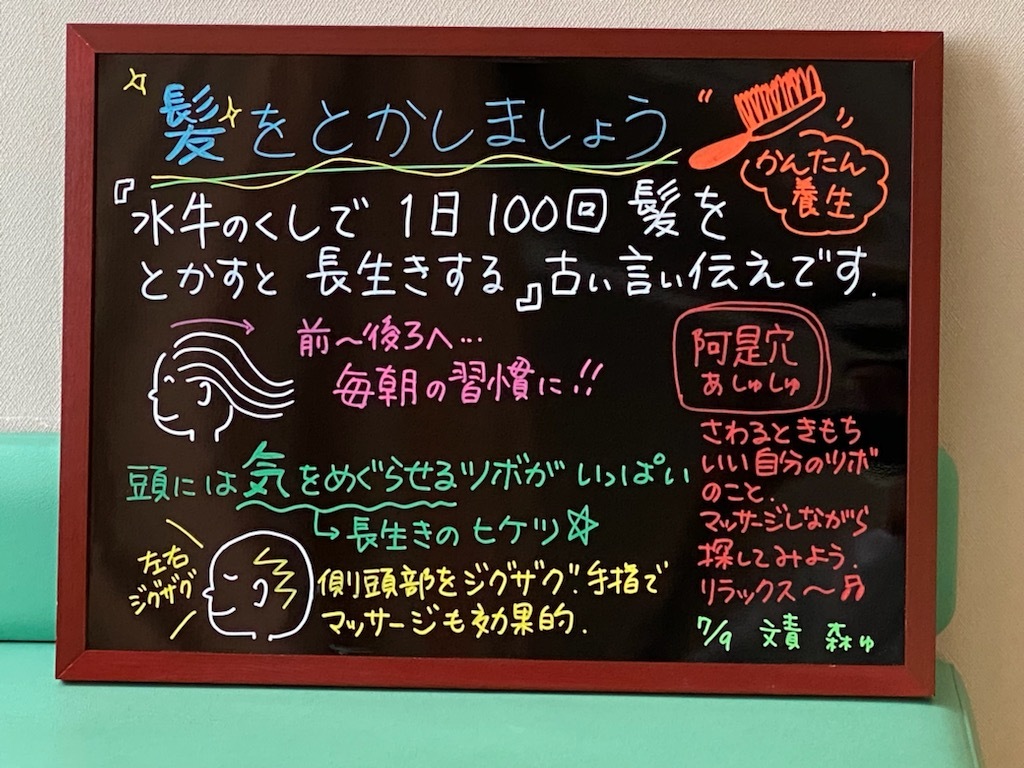 髪をとかしましょう
かんたん
養生
『水牛のくしで 1日100回 髪を
とかすと 長生きする』古い言い伝えです.
前〜後ろへ…
毎朝の習慣に!!
阿是穴
あしゅしゅ
さわるときもち
いい自分のツボ
のこと.
マッサージしながら
探してみよう.
リラックス〜♫
頭には気をめぐらせるツボが いっぱい
↳長生きの ヒケツ☆
左右
ジグザグ
側頭部をジグザグ!!手指で
マッサージも効果的.
7/9 文責 森ゅ